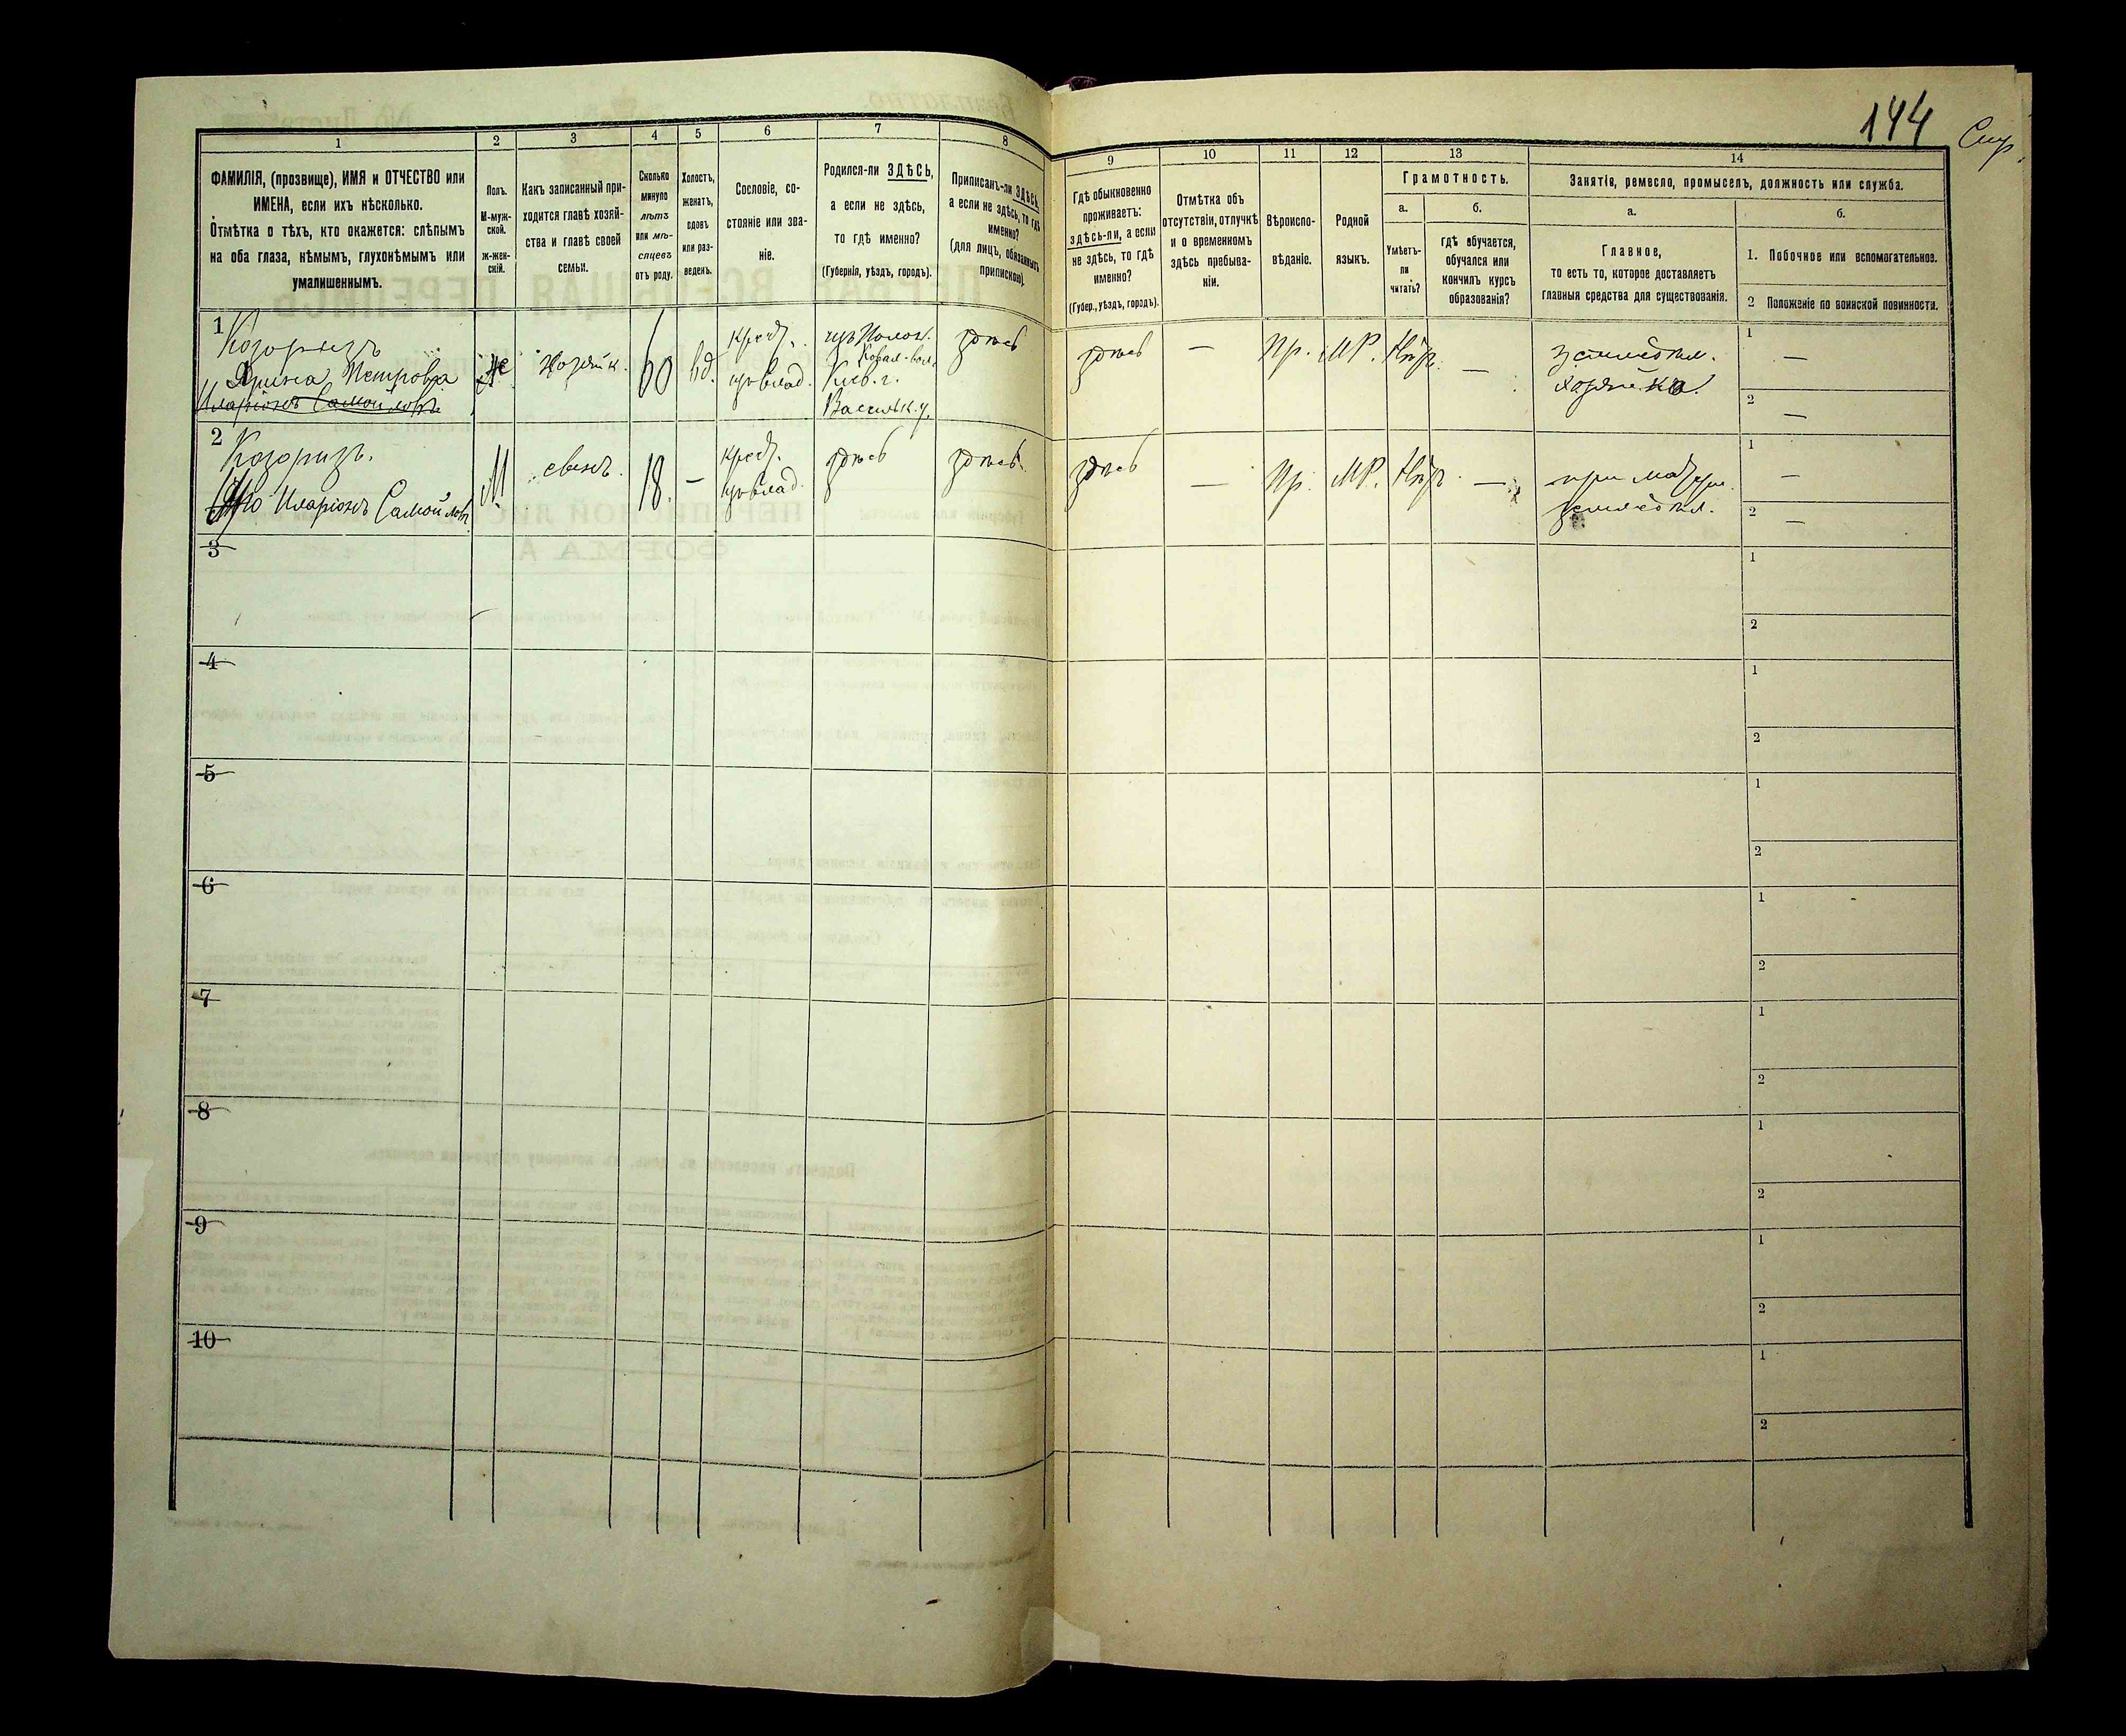 144
1
2
3
4
5
6
7
8
ФАМИЛІЯ, (прозвище), ИМЯ и ОТЧЕСТВО или
ИМЕНА, если ихъ нѣсколько.
Отмѣтка о тѣхъ, кто окажется: слѣпымъ
на оба глаза, нѣмымъ, глухонѣмымъ или
умалишеннымъ.
Полъ.
М-муж-
ской.
ж-жен-
скій.
Какъ записанный при-
ходится главѣ хозяй-
ства и главѣ своей
семьи.
Сколько
минуло
лѣтъ
или мѣ-
сяцевъ
отъ роду.
Холостъ,
женатъ,
вдовъ
или раз-
веденъ.
Сословіе, со-
стояніе или зва-
ніе.
Родился-ли ЗДѢСЬ,
а если не здѣсь,
то гдѣ именно?
(Губернія, уѣздъ, городъ).
Приписанъ-ли ЗДѢСЬ,
а если не здѣсь, то гдѣ
именно?
(для лицъ, обязанныхъ
припискою).
9
10
11
12
13
14
Гдѣ обыкновенно
проживаетъ:
здѣсь-ли, а если
не здѣсь, то гдѣ
именно?
(Губер., уѣздъ, городъ).
Отмѣтка объ
отсутствіи, отлучкѣ
и о временномъ
здѣсь пребыва-
ніи.
Вѣроиспо-
вѣданіе.
Родной
языкъ.
Грамотность.
а.
Умѣетъ-
ли
читать?
б.
гдѣ обучается,
обучался или
кончилъ курсъ
образованія?
Занятіе, ремесло, промыселъ, должность или служба.
а.
Главное,
то есть то, которое доставляетъ
главныя средства для существованія.
б.
1. Побочное или вспомогательное.
2 Положеніе по воинской повинности.
1
Козоризъ
Ярина Петрова
Иларіонъ Самойловъ
Ж
Хозяйк.
60
вд.
крест.
Кіев. г.
Васильк. у.
здѣсь
здѣсь
—
Пр.
МР.
—
земледѣл.
хозяйка.
1
—
2
—
2
Козоризъ.
Иларіонъ Самойлов.
М
18.
—
крест.
здѣсь
здѣсь
здѣсь
—
Пр.
МР.
—
при матери
земледѣл.
1
—
2
—
3
1
2
4
1
2
5
1
2
6
1
2
7
1
2
8
1
2
9
1
2
10
1
2